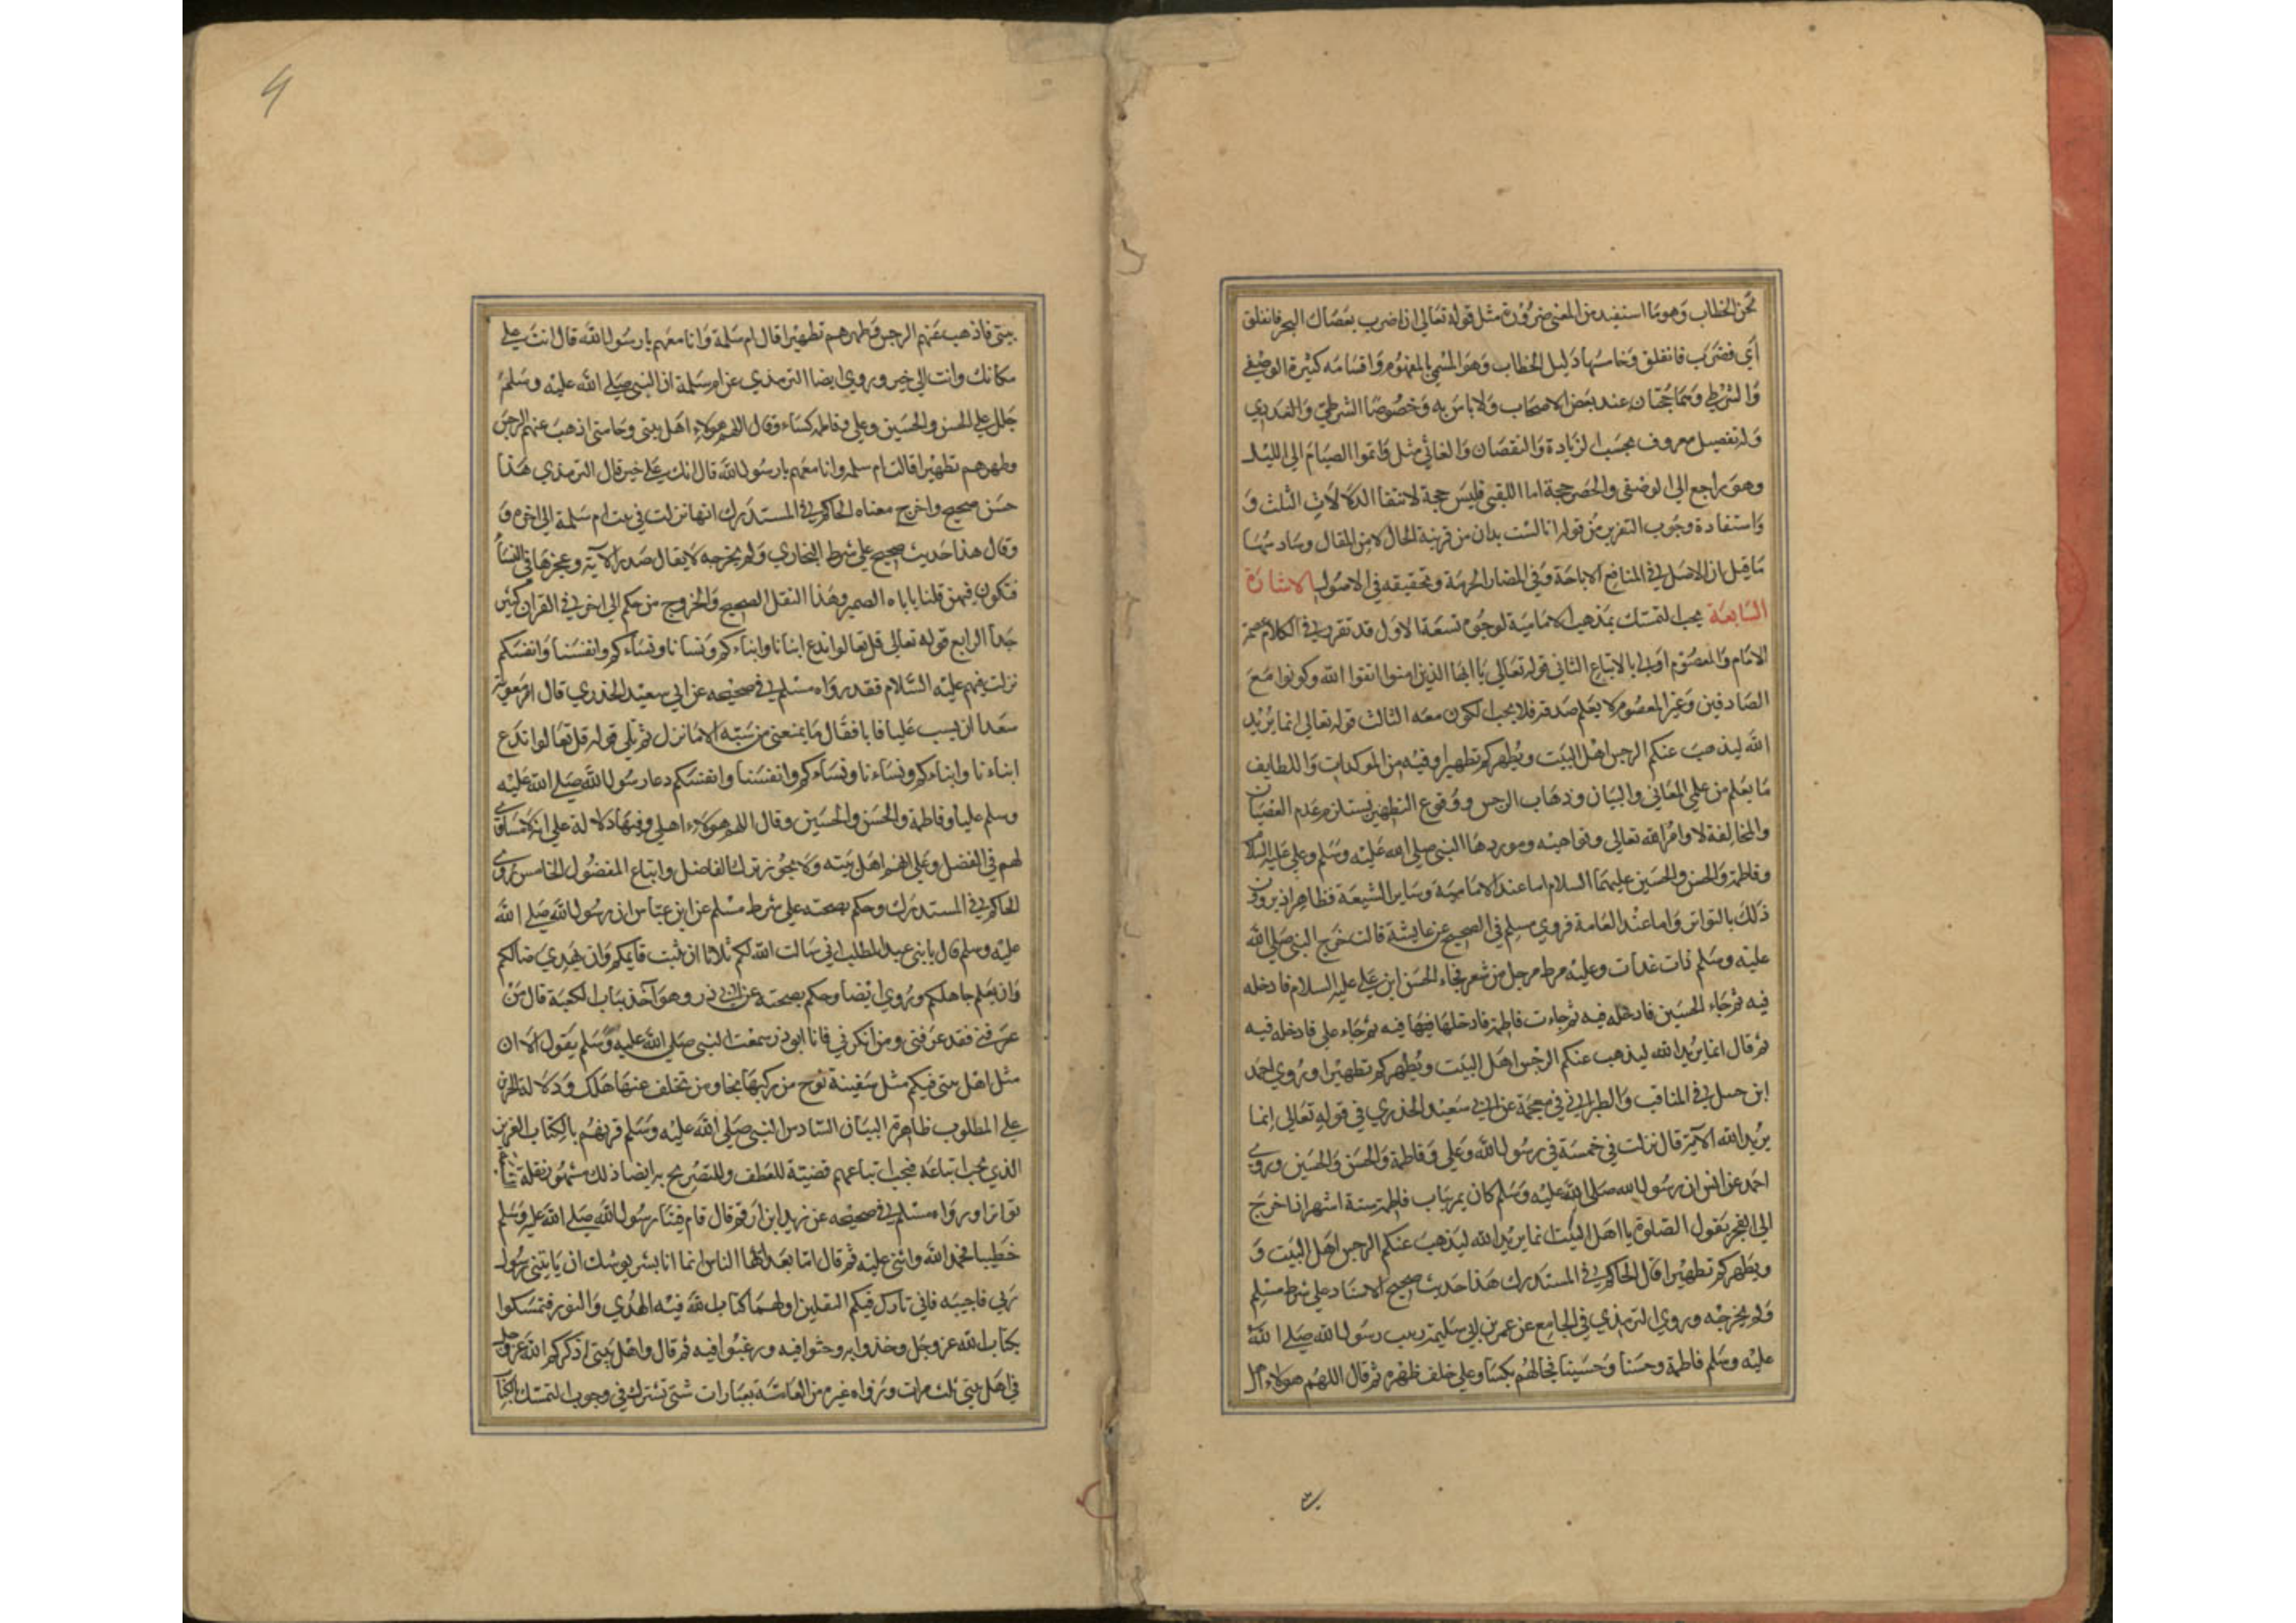 لحن الخطاب وهو ما استفيد من المعنى ضرورة مثل قوله تعالى ان اضرب بعصاك البحر فانفلق
أي فضرب فانفلق وخامسها دليل الخطاب وهو المسمى بالمفهوم واقسامه كثيرة الوصفي
والشرطي وهما حجتان عند بعض الاصحاب ولا باس به وخصوصا الشرطي والعددي
وله تفصيل معروف بحسب الزيادة والنقصان والغائي مثل واتموا الصيام الى الليل
وهو راجع الى الوصفي والحصر حجة اما اللقبي فليس حجة لانتفا الدلالات الثلث و
واستفادة وجوب التعزير من قوله انا لست بزان من قرينة الحال لا من المقال وسادسها
ما قيل ان الاصل في المنافع الاباحة وفي المضار الحرمة وتحقيقه في الاصول الاشارة
السابعة يجب التمسك بمذهب الامامية لوجوه تسعة الاول قد تقرر في الكلام عصمة
الامام والمعصوم اولى بالاتباع الثاني قوله تعالى يا ايها الذين امنوا اتقوا الله وكونوا مع
الصادقين وغير المعصوم لا يعلم صدقه فلا يجب الكون معه الثالث قوله تعالى انما يريد
الله ليذهب عنكم الرجس اهل البيت ويطهركم تطهيرا وفيه من الموكدات واللطايف
ما يعلم من علمي المعاني والبيان وذهاب الرجس ووقوع التطهير يستلزم عدم العصيان
والمخالفة لاوامر الله تعالى ونواهيه وموردها النبي صلى الله عليه وسلم وعلي عليه السلام
وفاطمة والحسن والحسين عليهما السلام اما عند الامامية وساير الشيعة فظاهر اذ يروون
ذلك بالتواتر واما عند العامة فروي مسلم في الصحيح عن عايشة قالت خرج النبي صلى الله
عليه وسلم ذات غداة وعليه مرط مرحل من شعر فجاء الحسن ابن علي عليه السلام فادخله
فيه ثم جاء الحسين فادخله فيه ثم جاءت فاطمة فادخلها فيها فيه ثم جاء علي فادخله فيه
ثم قال انما يريد الله ليذهب عنكم الرجس اهل البيت ويطهركم تطهيرا وروى احمد
ابن حنبل في المناقب والطبراني في معجمة عن ابي سعيد الخدري في قوله تعالى انما
يريد الله الآية قال نزلت في خمسة في رسول الله وعلي وفاطمة والحسن والحسين وروى
احمد عن انس ان رسول الله صلى الله عليه وسلم كان يمر بباب فاطمة ستة اشهر اذا خرج
الى الفجر يقول الصلوة يا اهل البيت انما يريد الله ليذهب عنكم الرجس اهل البيت و
ويطهركم تطهيرا قال الحاكم في المستدرك هذا حديث صحيح الاسناد على شرط مسلم
ولم يخرجه وروى الترمذي في الجامع عن عمر بن ابي سليمة ربيب رسول الله صلى الله
عليه وسلم فاطمة وحسنا وحسينا فجللهم بكسا وعلي خلف ظهره ثم قال اللهم هولاء اهل
بيتي فاذهب عنهم الرجس وطهرهم تطهيرا قال ام سلمة وانا معهم يا رسول الله قال انت على
مكانك وانت الى خير وروى ايضا الترمذي عن ام سلمة ان النبي صلى الله عليه وسلم
جلل على الحسن والحسين وعلي وفاطمة كساء وقال اللهم هولاء اهل بيتي وحامتي اذهب عنهم الرجس
وطهرهم تطهيرا قالت ام سلمه وانا معهم يا رسول الله قال انك على خير قال الترمذي هذا
حسن صحيح واخرج معناه الحاكم في المستدرك انها نزلت في بيت ام سلمة الى اخره و
وقال هذا حديث صحيح على شرط البخاري ولم يخرجه لا يقال صدر الآية وعجزها في النسا
فتكون فيهن قلنا ياباه الضمير وهذا النقل الصحيح والخروج من حكم الى اخر في القران كثير
جدا الرابع قوله تعالى قل تعالوا ندع ابنانا وابناءكم ونسانا ونساءكم وانفسنا وانفسكم
نزلت فيهم عليه السلام فقد رواه مسلم في صحيحه عن ابي سعيد الخدري قال امر معوية
سعدا ان يسب عليا فابا فقال ما يمنعني من سبه الاما نزل ثم تلى قوله قل تعالوا ندع
ابناءنا وابناءكم ونساءنا ونساءكم وانفسنا وانفسكم دعا رسول الله صلى الله عليه
وسلم عليا وفاطمة والحسن والحسين وقال اللهم هولاء اهلي وفيها دلالة على انه لا مساوي
لهم في الفضل وعلى انهم اهل بيته ولا يجوز ترك الفاضل واتباع المفضول الخامس روى
الحاكم في المستدرك وحكم بصحته على شرط مسلم عن ابن عباس ان رسول الله صلى الله
عليه وسلم قال يا بني عبد المطلب اني سالت الله لكم ثلاثا ان يثبت قايمكم وان يهدي ضالكم
وان يعلم جاهلكم وروى ايضا وحكم بصحته عن ابي ذر وهو آخذ بباب الكعبة قال من
عرفني فقد عرفني ومن انكرني فانا ابو ذر سمعت النبي صلى الله عليه وسلم يقول الا ان
مثل اهل بيتي فيكم مثل سفينة نوح من ركبها نجا ومن تخلف عنها هلك ودلالة الخبرين
على المطلوب ظاهرة البيان السادس النبي صلى الله عليه وسلم قرنهم بالكتاب العزيز
الذي يجب اتباعه فيجب اتباعهم قضيتة للعطف وللتصريح به ايضا ذلك مشهور نقلة
تواترا ورواه مسلم في صحيحه عن زيد ابن ارقم قال قام فينا رسول الله صلى الله عليه وسلم
خطيبا فحمد الله واثنى عليه ثم قال اما بعد ايها الناس انما انا بشر يوشك ان ياتيني رسول
ربي فاجيبه فاني تارك فيكم الثقلين اولهما كتاب الله فيه الهدي والنور فتمسكوا
بكتاب الله عز وجل وخذوا به وحثوا فيه ورغبوا فيه ثم قال واهل بيتي اذكركم الله عز وجل
في اهل بيتي ثلث مرات ورواه غيره من العامة بعبارات شتى تشترك في وجوب التمسك بالكتاب